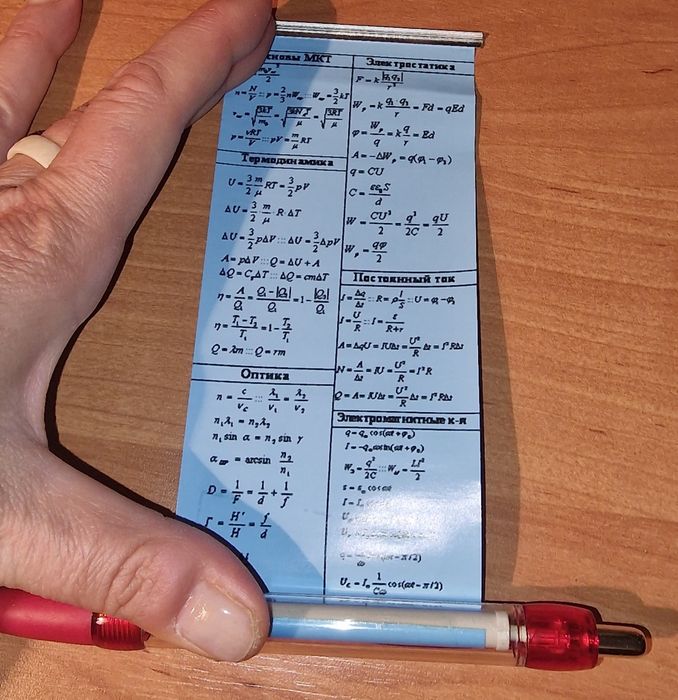 основы МКТ
n = N/V ::: p = 2/3 nWср ::: Wср = 3/2 kT
= √(3kT/m₀) = √(3kNₐT/μ) = √(3RT/μ)
p = νRT/V ::: pV = m/μ RT
Термодинамика
U = 3/2 m/μ RT = 3/2 pV
ΔU = 3/2 · m/μ R·ΔT
ΔU = 3/2 pΔV ::: ΔU = 3/2 ΔpV
A = pΔV ::: Q = ΔU + A
ΔQ = CᵥΔT ::: ΔQ = cmΔT
η = A/Q₁ = (Q₁ − |Q₂|)/Q₁ = 1 − |Q₂|/Q₁
η = (T₁ − T₂)/T₁ = 1 − T₂/T₁
Q = λm ::: Q = rm
Оптика
n = c/v ::: λ₁/v₁ = λ₂/v₂
n₁λ₁ = n₂λ₂
n₁ sin α = n₂ sin γ
αпр = arcsin n₂/n₁
D = 1/F = 1/d + 1/f
Γ = H'/H = f/d
Электростатика
F = k |q₁q₂|/r²
Wₚ = k q₁·q₂/r = Fd = qEd
φ = Wₚ/q = k q/r = Ed
A = −ΔWₚ = q(φ₁ − φ₂)
q = CU
C = εε₀S/d
W = CU²/2 = q²/2C = qU/2
Wₚ = qφ/2
Постоянный ток
I = Δq/Δt ::: R = ρ l/S ::: U = φ₁ − φ₂
I = U/R ::: I = ε/(R+r)
A = ΔqU = IUΔt = U²/R Δt = I²RΔt
N = A/Δt = IU = U²/R = I²R
Q = A = IUΔt = U²/R Δt = I²RΔt
Электромагнитные к-я
q = qₘ cos(ωt + φ₀)
I = −qₘω sin(ωt + φ₀)
Wэ = q²/2C ::: Wм = LI²/2
ε = εₘ cos ωt
I = I
U
U
q = − π/2)
U_C = Iₘ 1/Cω cos(ωt − π/2)